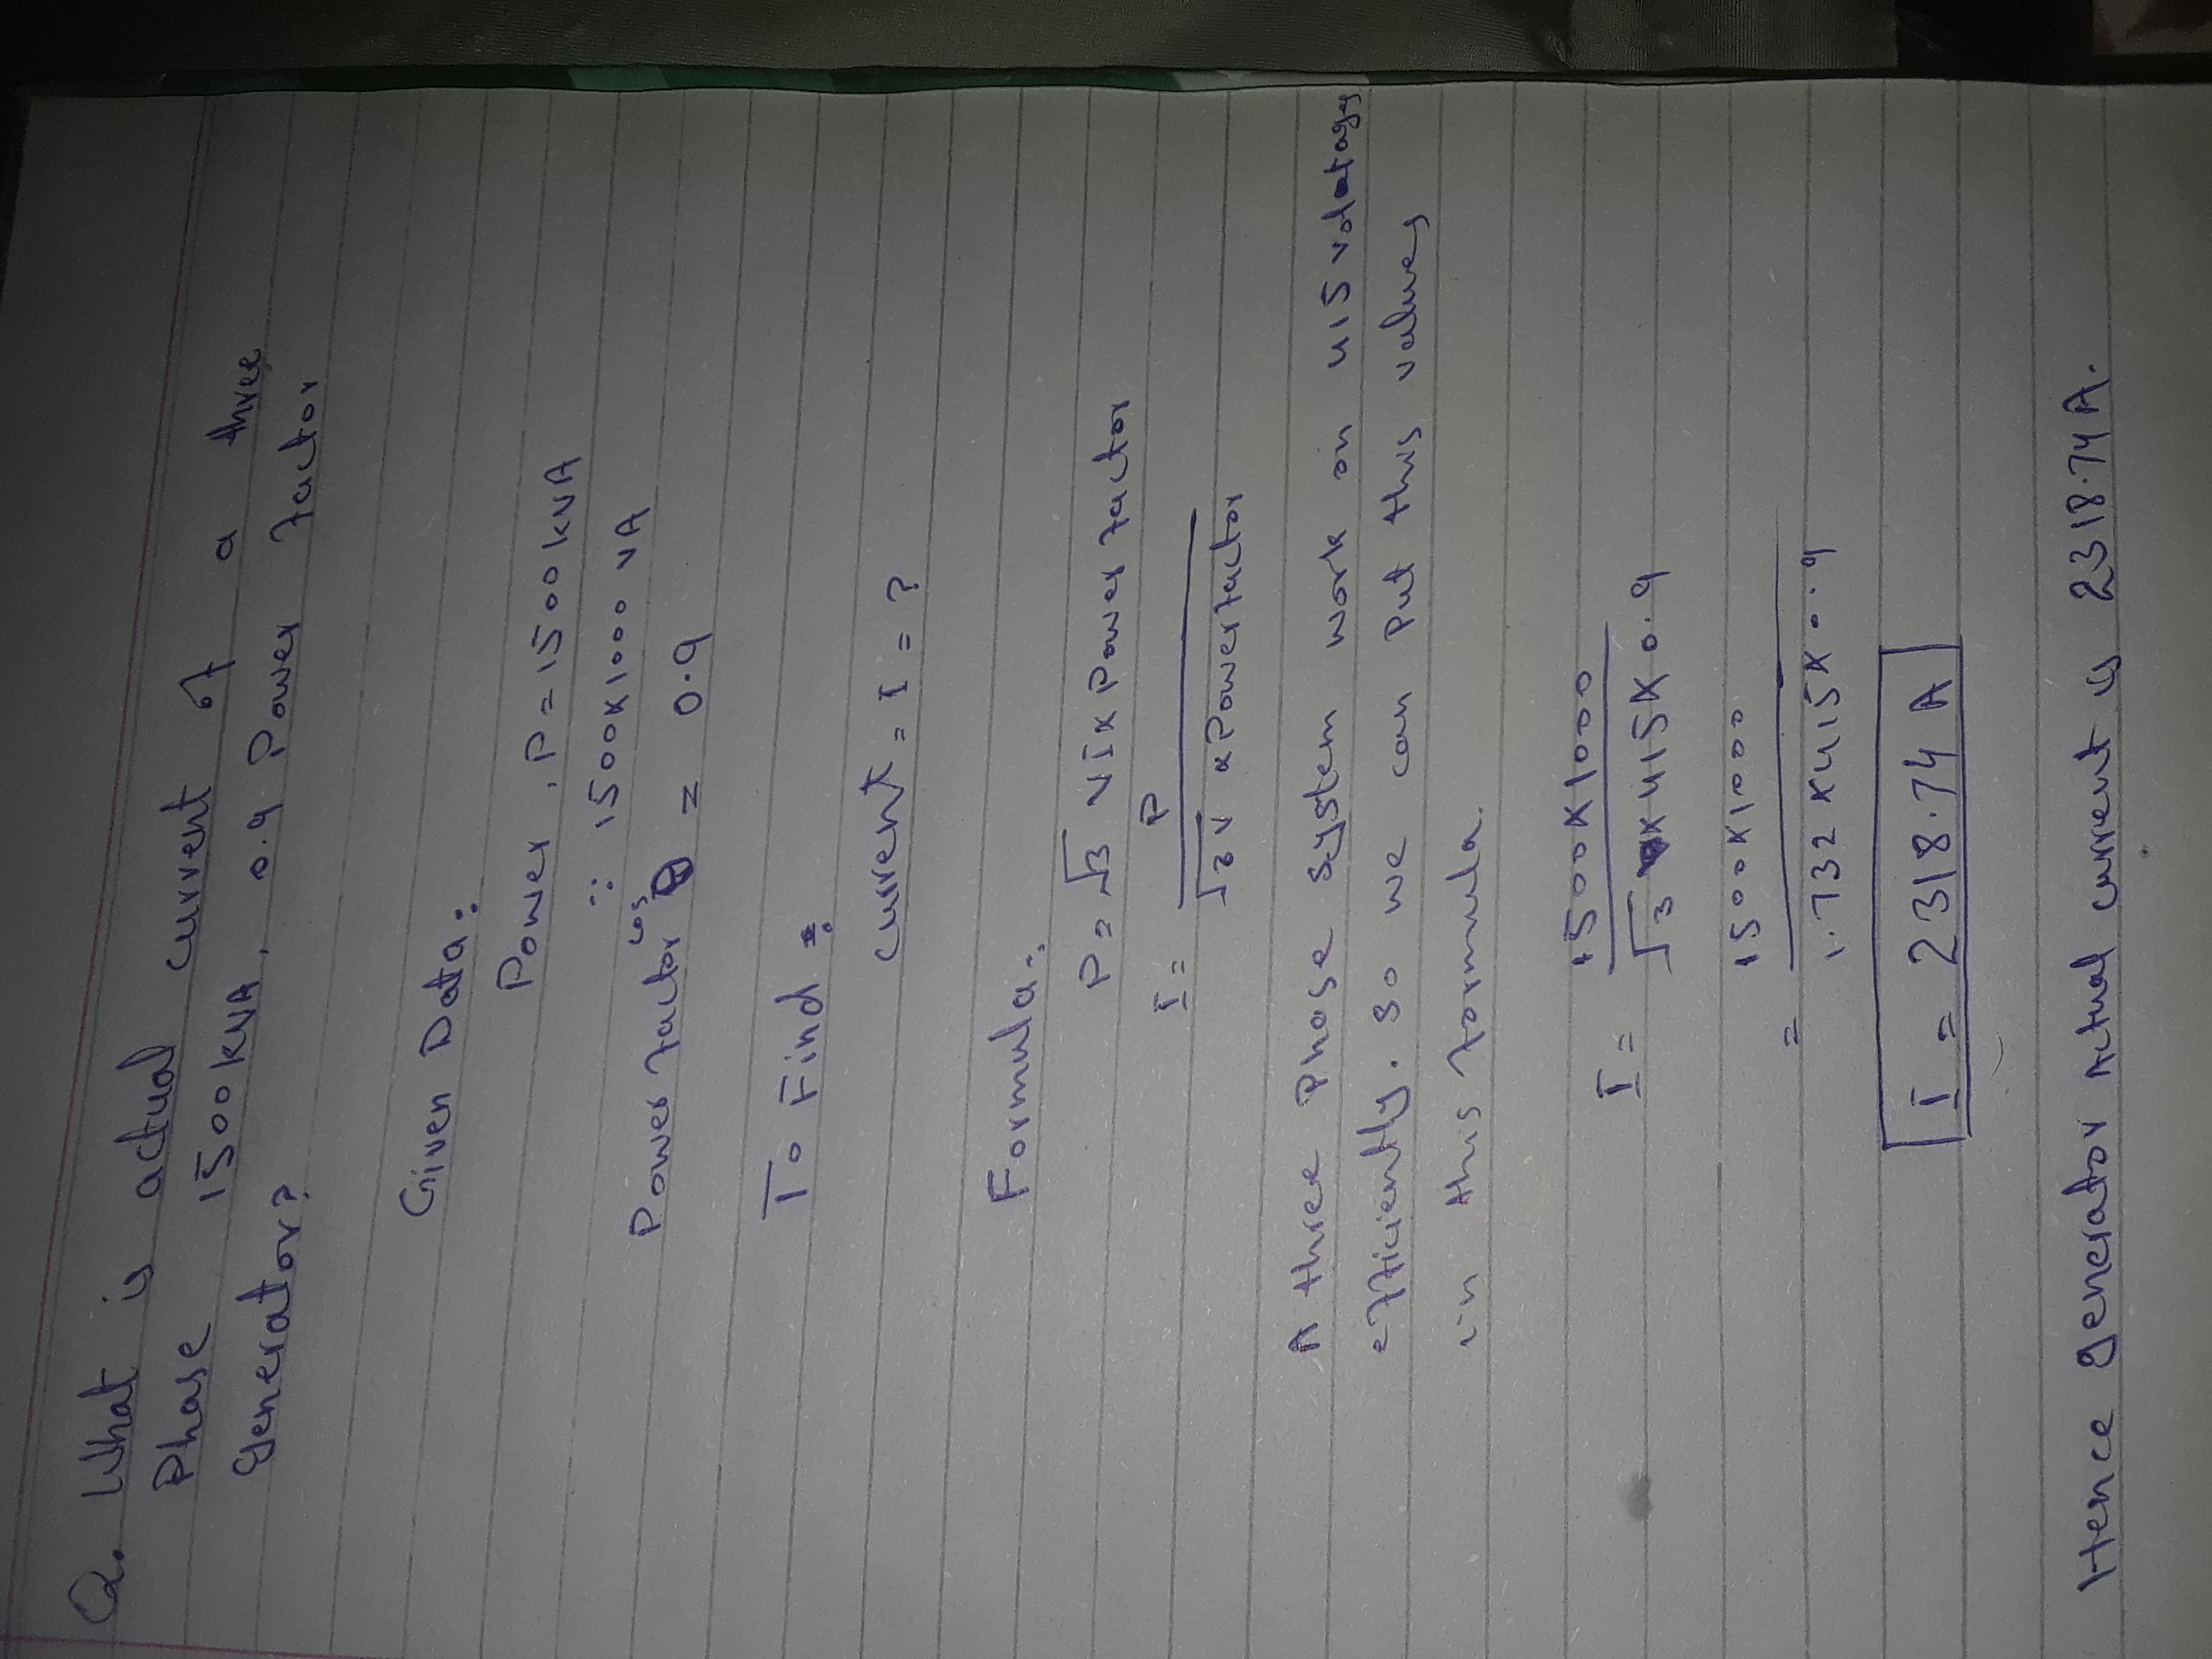 Q. What is actual current of a three
Phase 1500 kVA, 0.9 Power factor
generator?
Given Data:
Power, P = 1500 kVA
∴ 1500×1000 VA
Power factor cos = 0.9
To Find :
current = I = ?
Formula:
P = √3 VI × Power factor
I = P
√3 V × Powerfactor
A three Phase system work on 415 volatages
efficiently. so we can put this values
in this formula.
I = 1500×1000
√3 × 415 × 0.9
= 1500×1000
1.732 × 415 × 0.9
I = 2318.74 A
Hence generator Actual current is 2318.74 A.